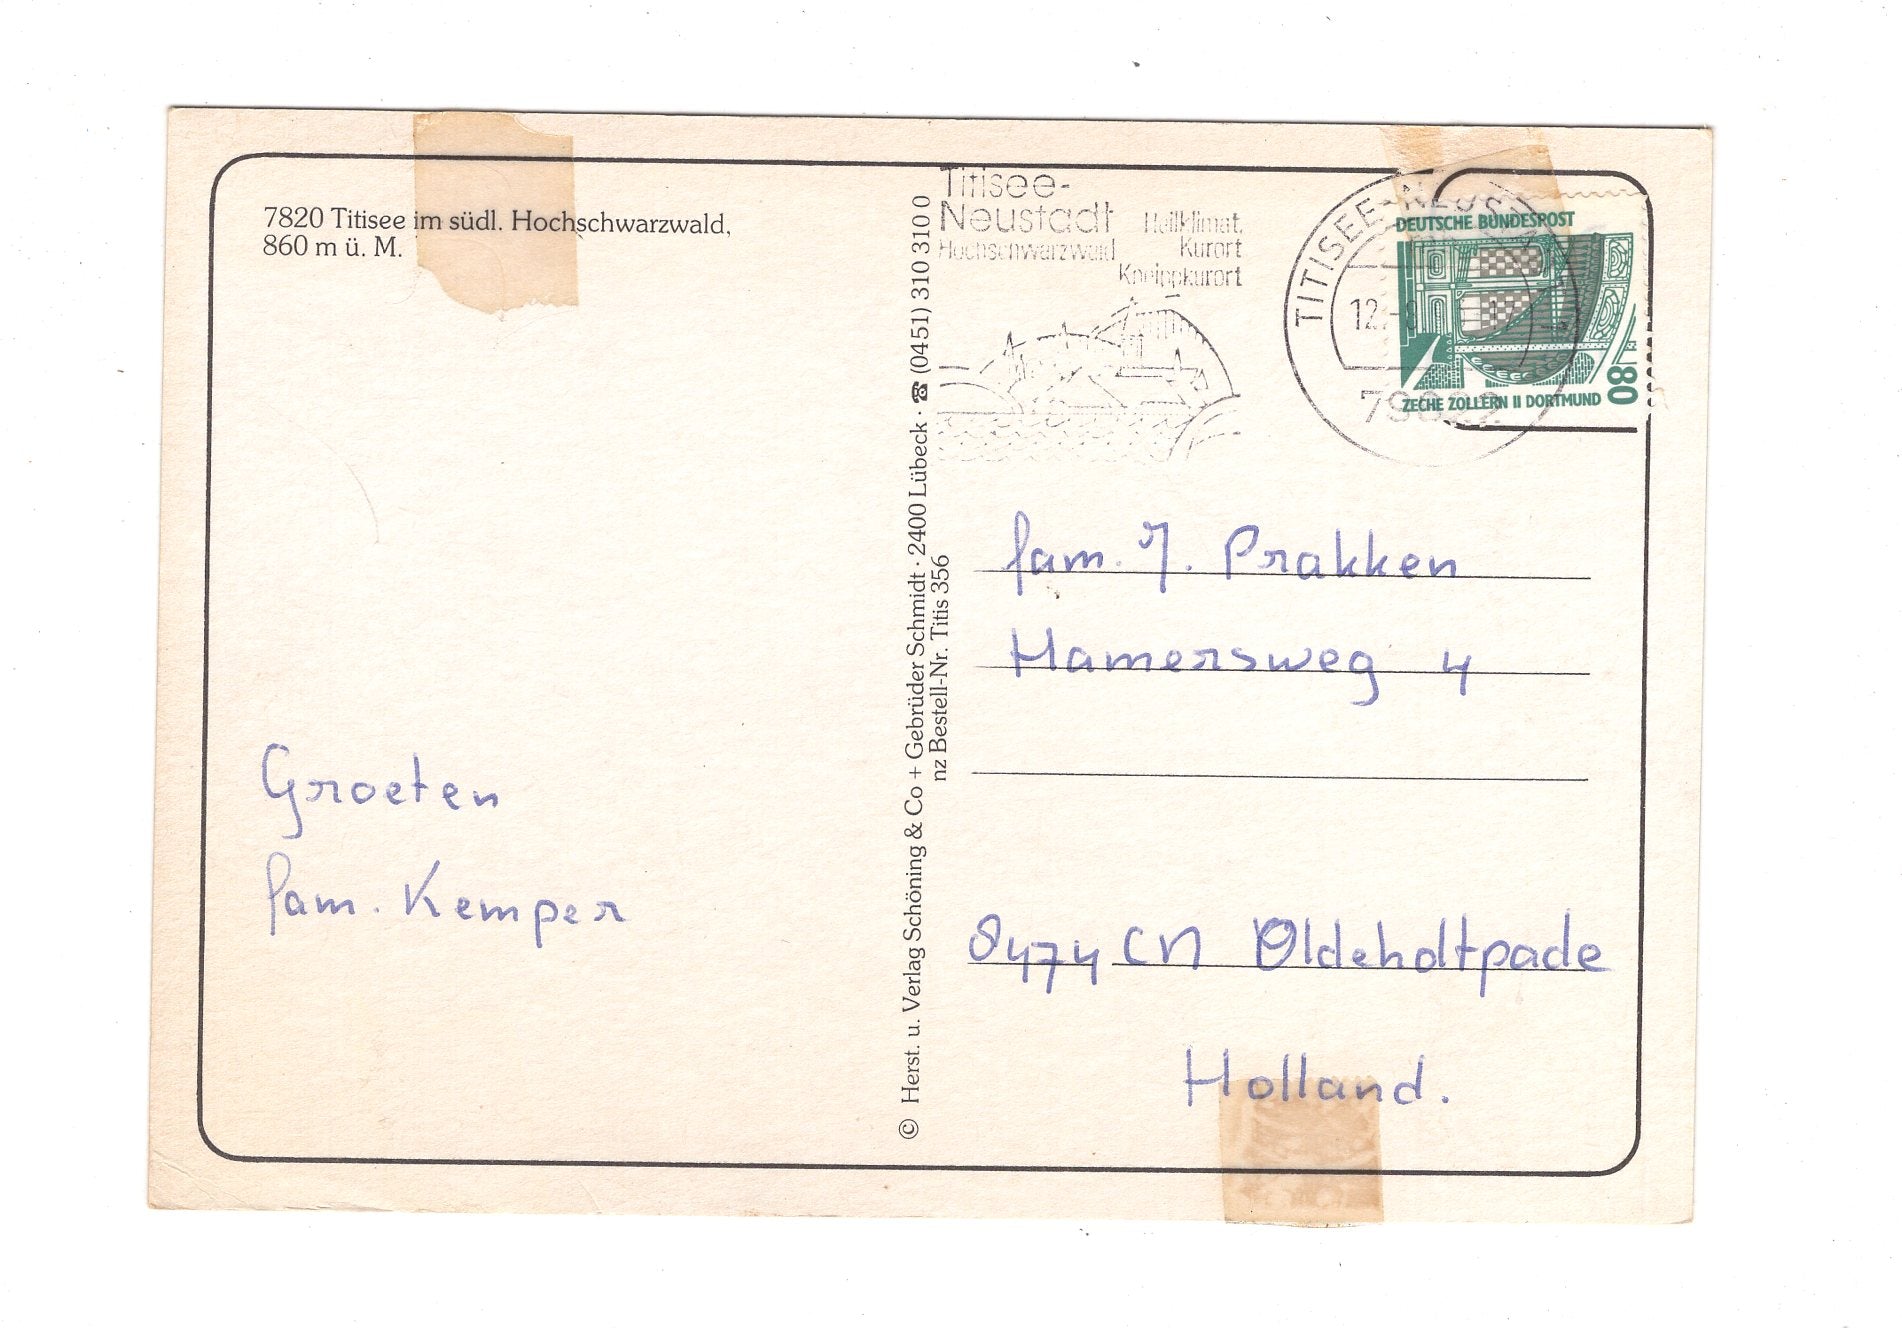 7820 Titisee im südl. Hochschwarzwald,
860 m ü. M.
Groeten
fam. Kemper
© Herst. u. Verlag Schöning & Co + Gebrüder Schmidt · 2400 Lübeck · ☎ (0451) 310 310 0
nz Bestell-Nr. Titis 356
Titisee-
Neustadt
Hochschwarzwald
Heilklimat.
Kurort
Kneippkurort
TITISEE-NEUSTADT
DEUTSCHE BUNDESPOST
80
ZECHE ZOLLERN II DORTMUND
fam. J. Prakken
Hamersweg 4
8474 CN Oldeholtpade
Holland.